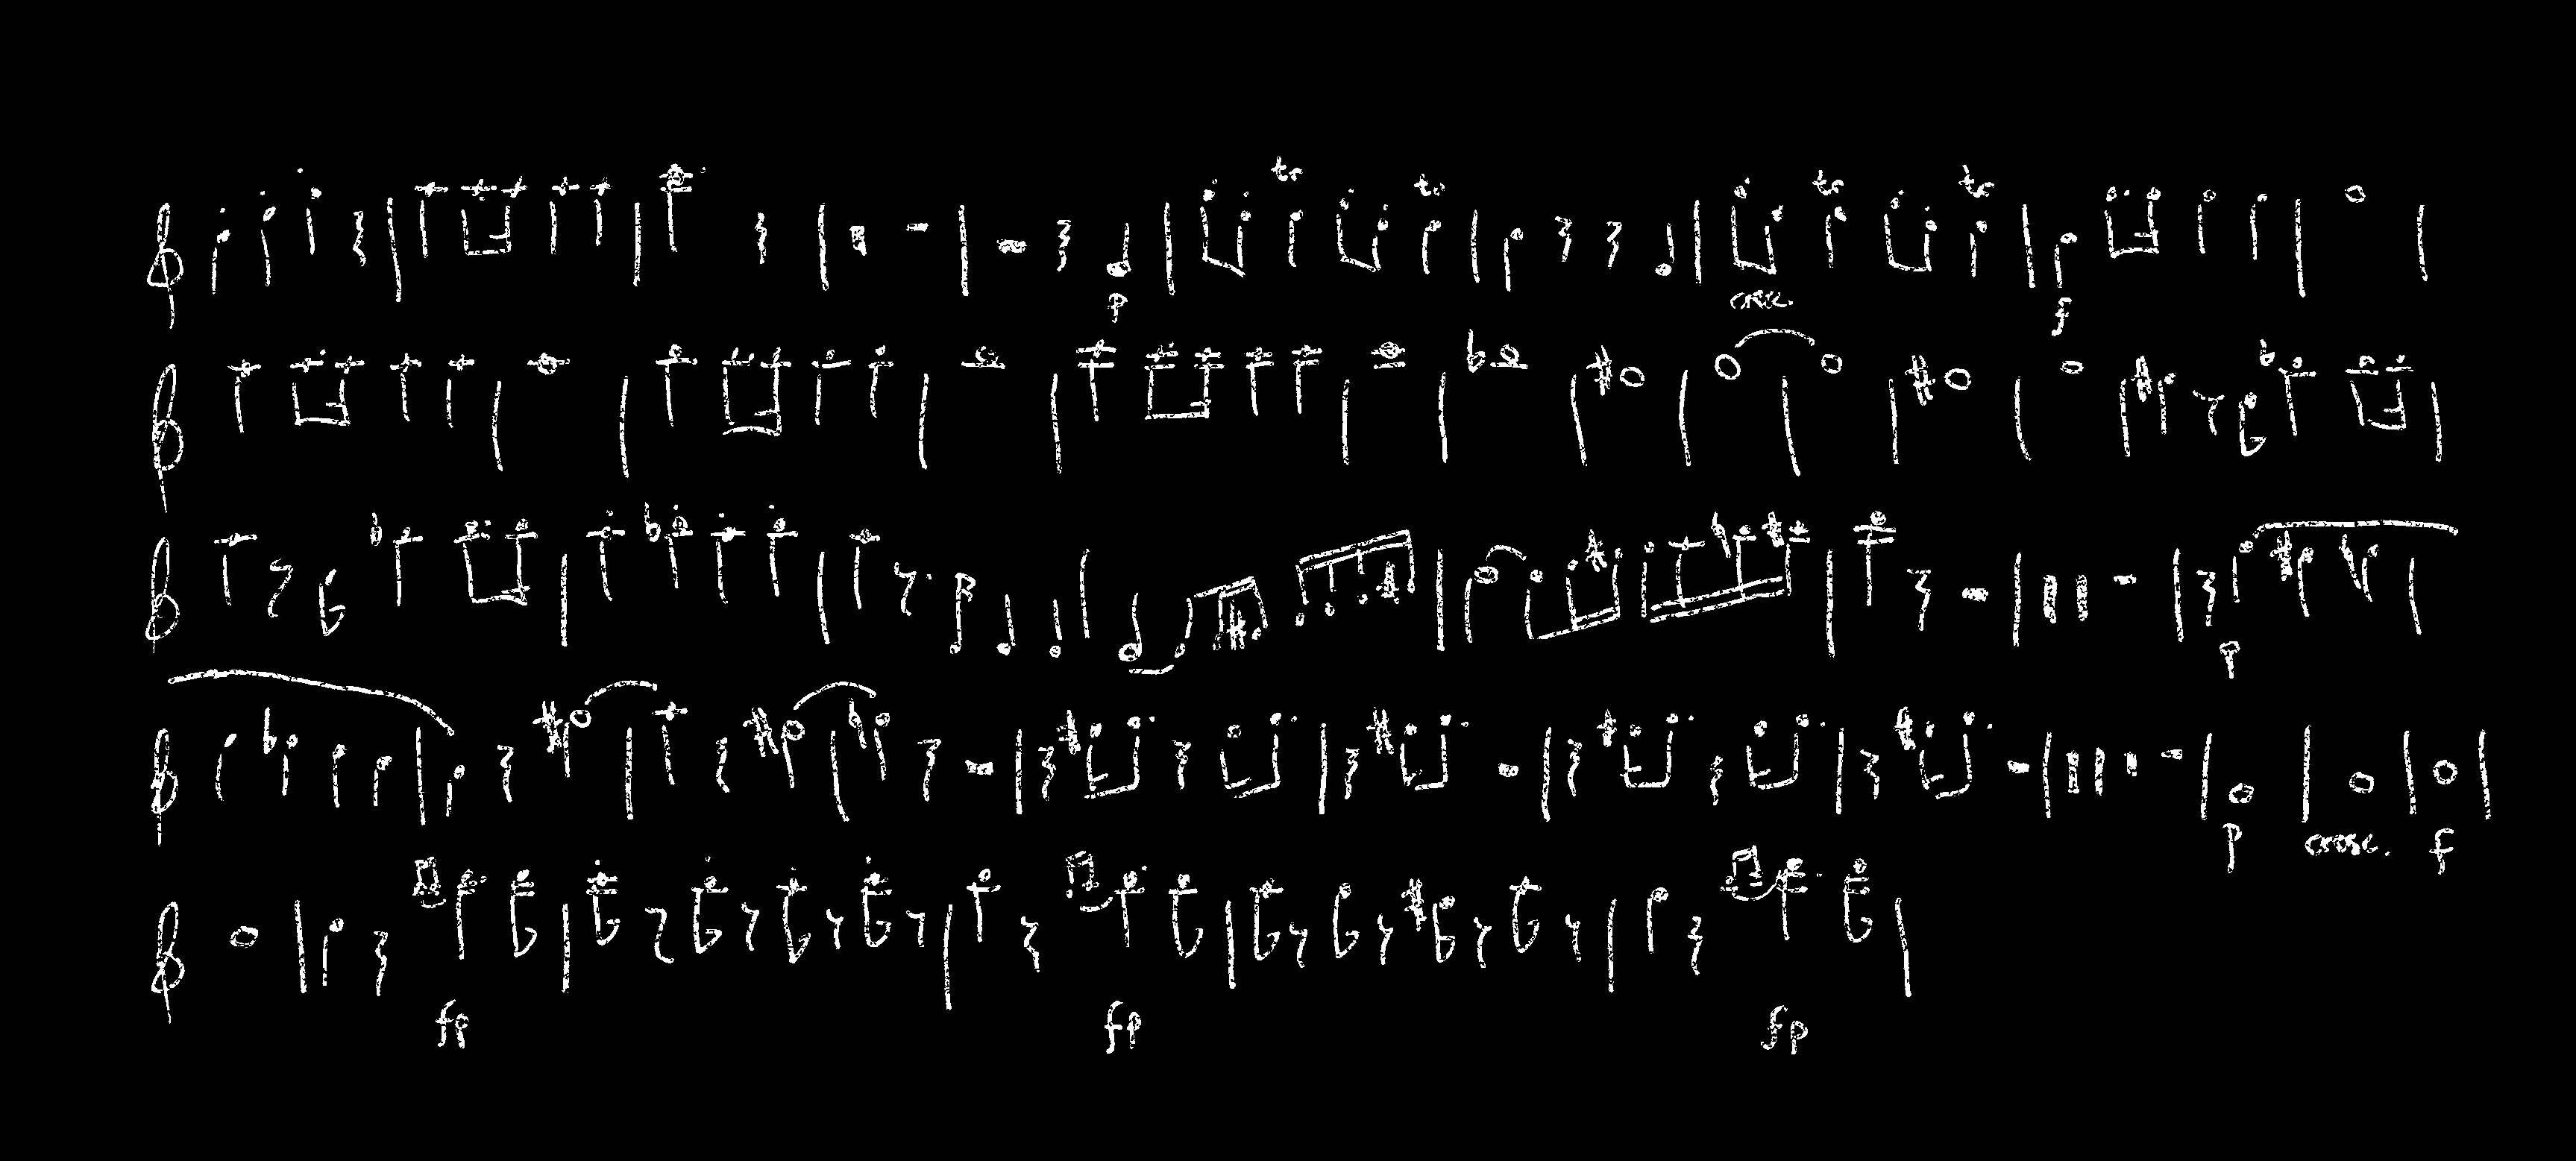 tr tr tr tr
p cresc. f
p
p cresc. f
fp fp fp